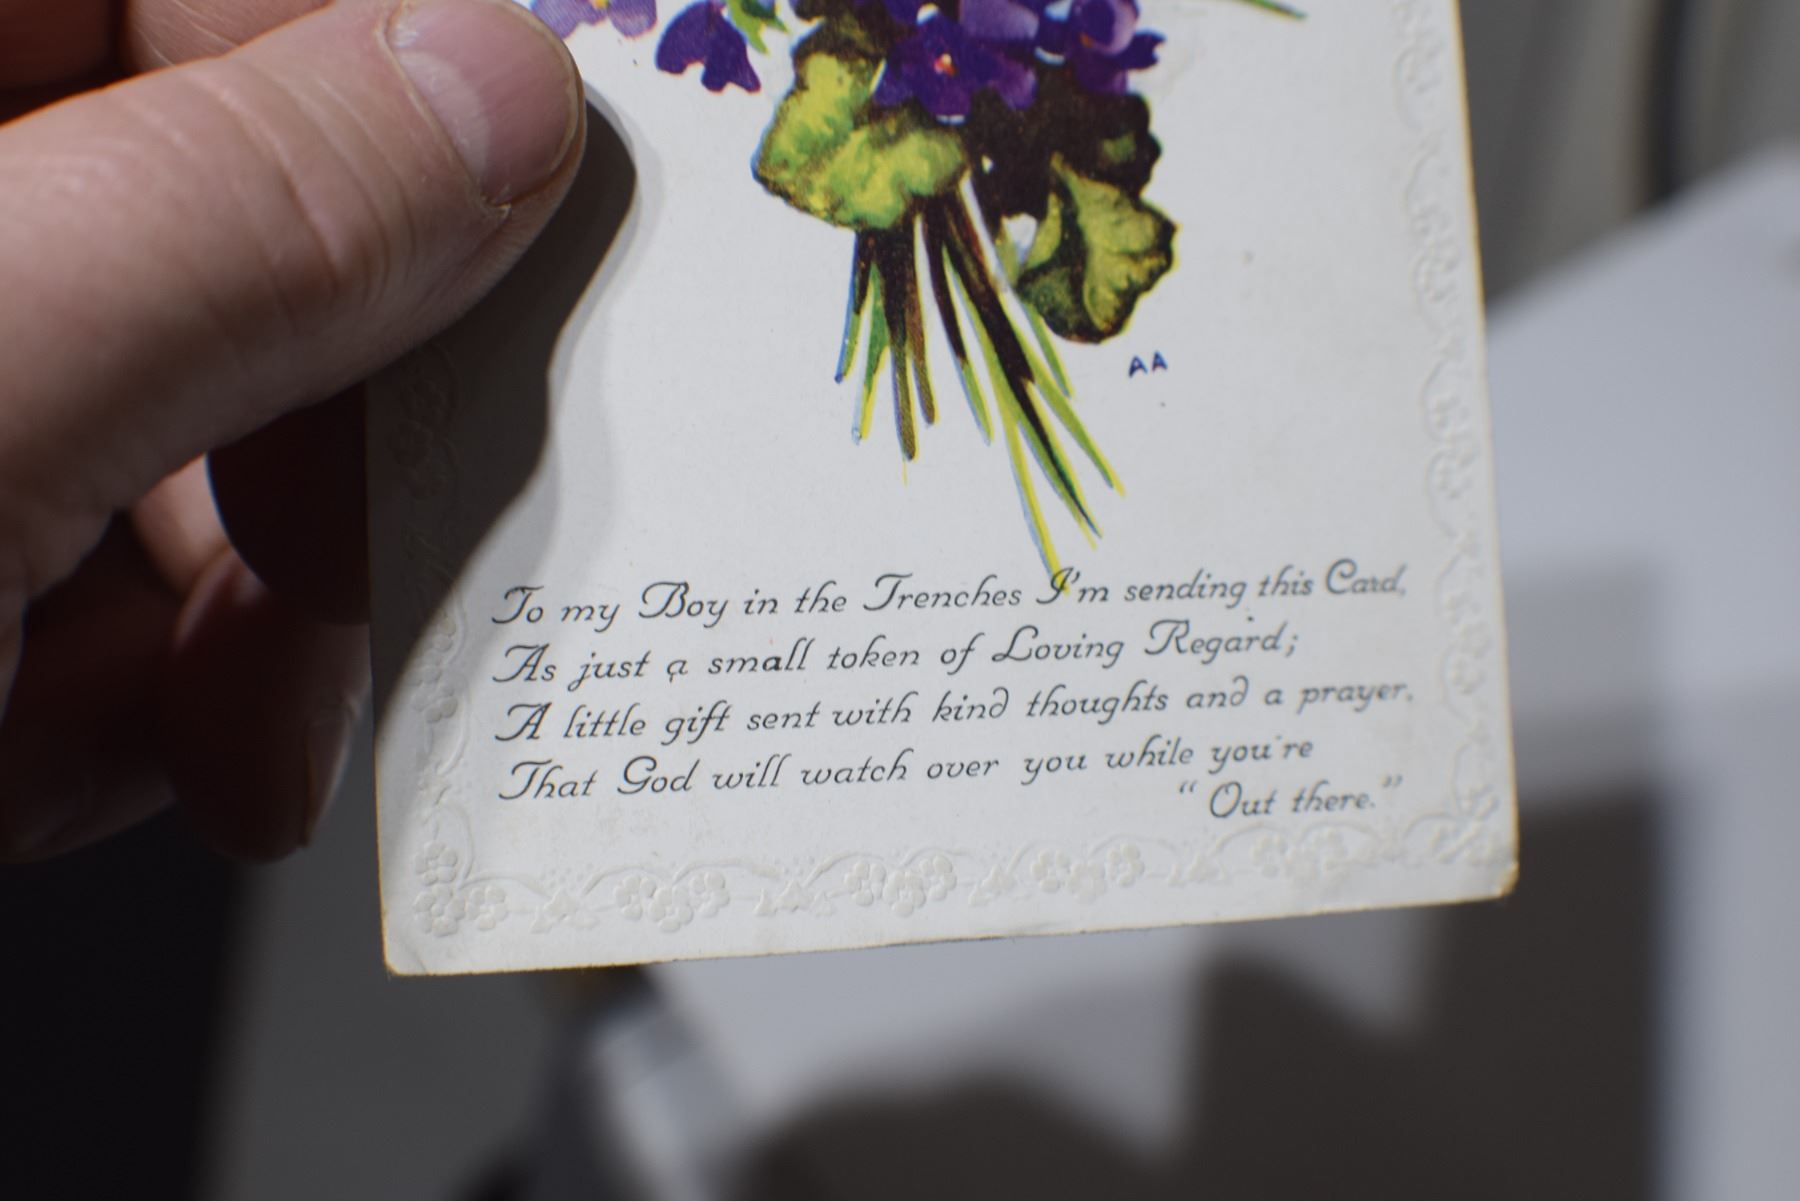 AA
To my Boy in the Trenches I'm sending this Card,
As just a small token of Loving Regard;
A little gift sent with kind thoughts and a prayer.
That God will watch over you while you're
"Out there."